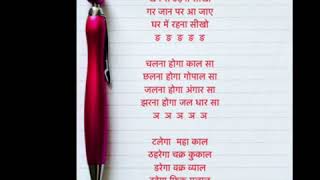 गर जान पर आ जाए
घर में रहना सीखो
ङ ङ ङ ङ ङ
चलना होगा काल सा
छलना होगा गोपाल सा
जलना होगा अंगार सा
झरना होगा जल धार सा
ञ ञ ञ ञ ञ
टलेगा महा काल
ठहरेगा चक्र कुकाल
डरेगा वक्र व्याल